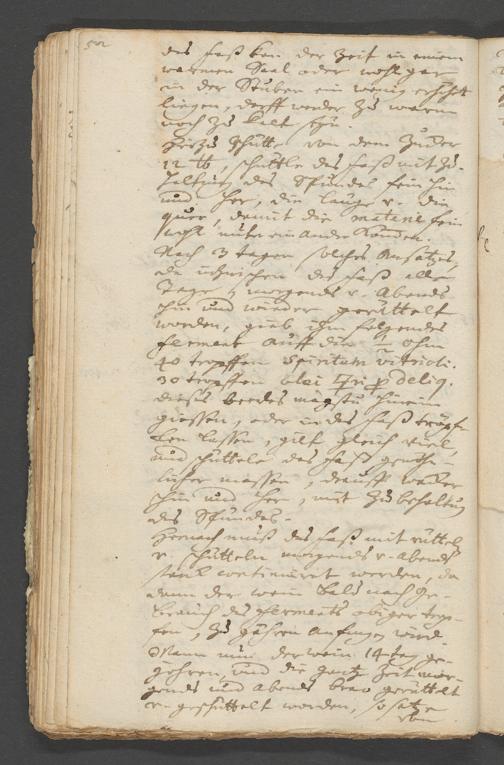 des faß kan der Zeit in einem
warmen Saal oder wohl gar
in der Stuben ein wenig erhöht
liegen, derff weder zu warm
noch zu kalt seyn.
Hierzu schütte von dem Zucker
12 lb, schüttle das faß mit Zu-
haltung des Spundes fein hin
und her, die lange v. die
quer, damit die materie fein
wohl unter ein ander komen.
Nach 3 tagen solches Ansatzes,
da inzwischen das faß alle
Tage, morgends v. Abends
hin und wieder gerüttelt
worden, gieb ihm folgendes
ferment auff die ohm
40 tropffen Spiritum vitrioli.
30 tropffen olei Tri p deliq.
dieses beedes magstu hinein
giessen, oder in das faß tröpf-
len lassen, gilt gleich viel,
und schüttele das faß
massen, drauff wieder
hin und her, mit Zubehaltung
des Spundes.
Hernach muß das faß mit rüttel
v. schütteln morgends v. Abends
starck continuiret werden, da
dann der wein bald nach ge-
brauch des ferments obiger trop-
fen, zu gähren anfangen wird.
Wann nun der wein 14 tag ge-
gohren, und die gantz Zeit mor-
gends und Abends brav gerüttelt
v. geschüttelt worden, so setze